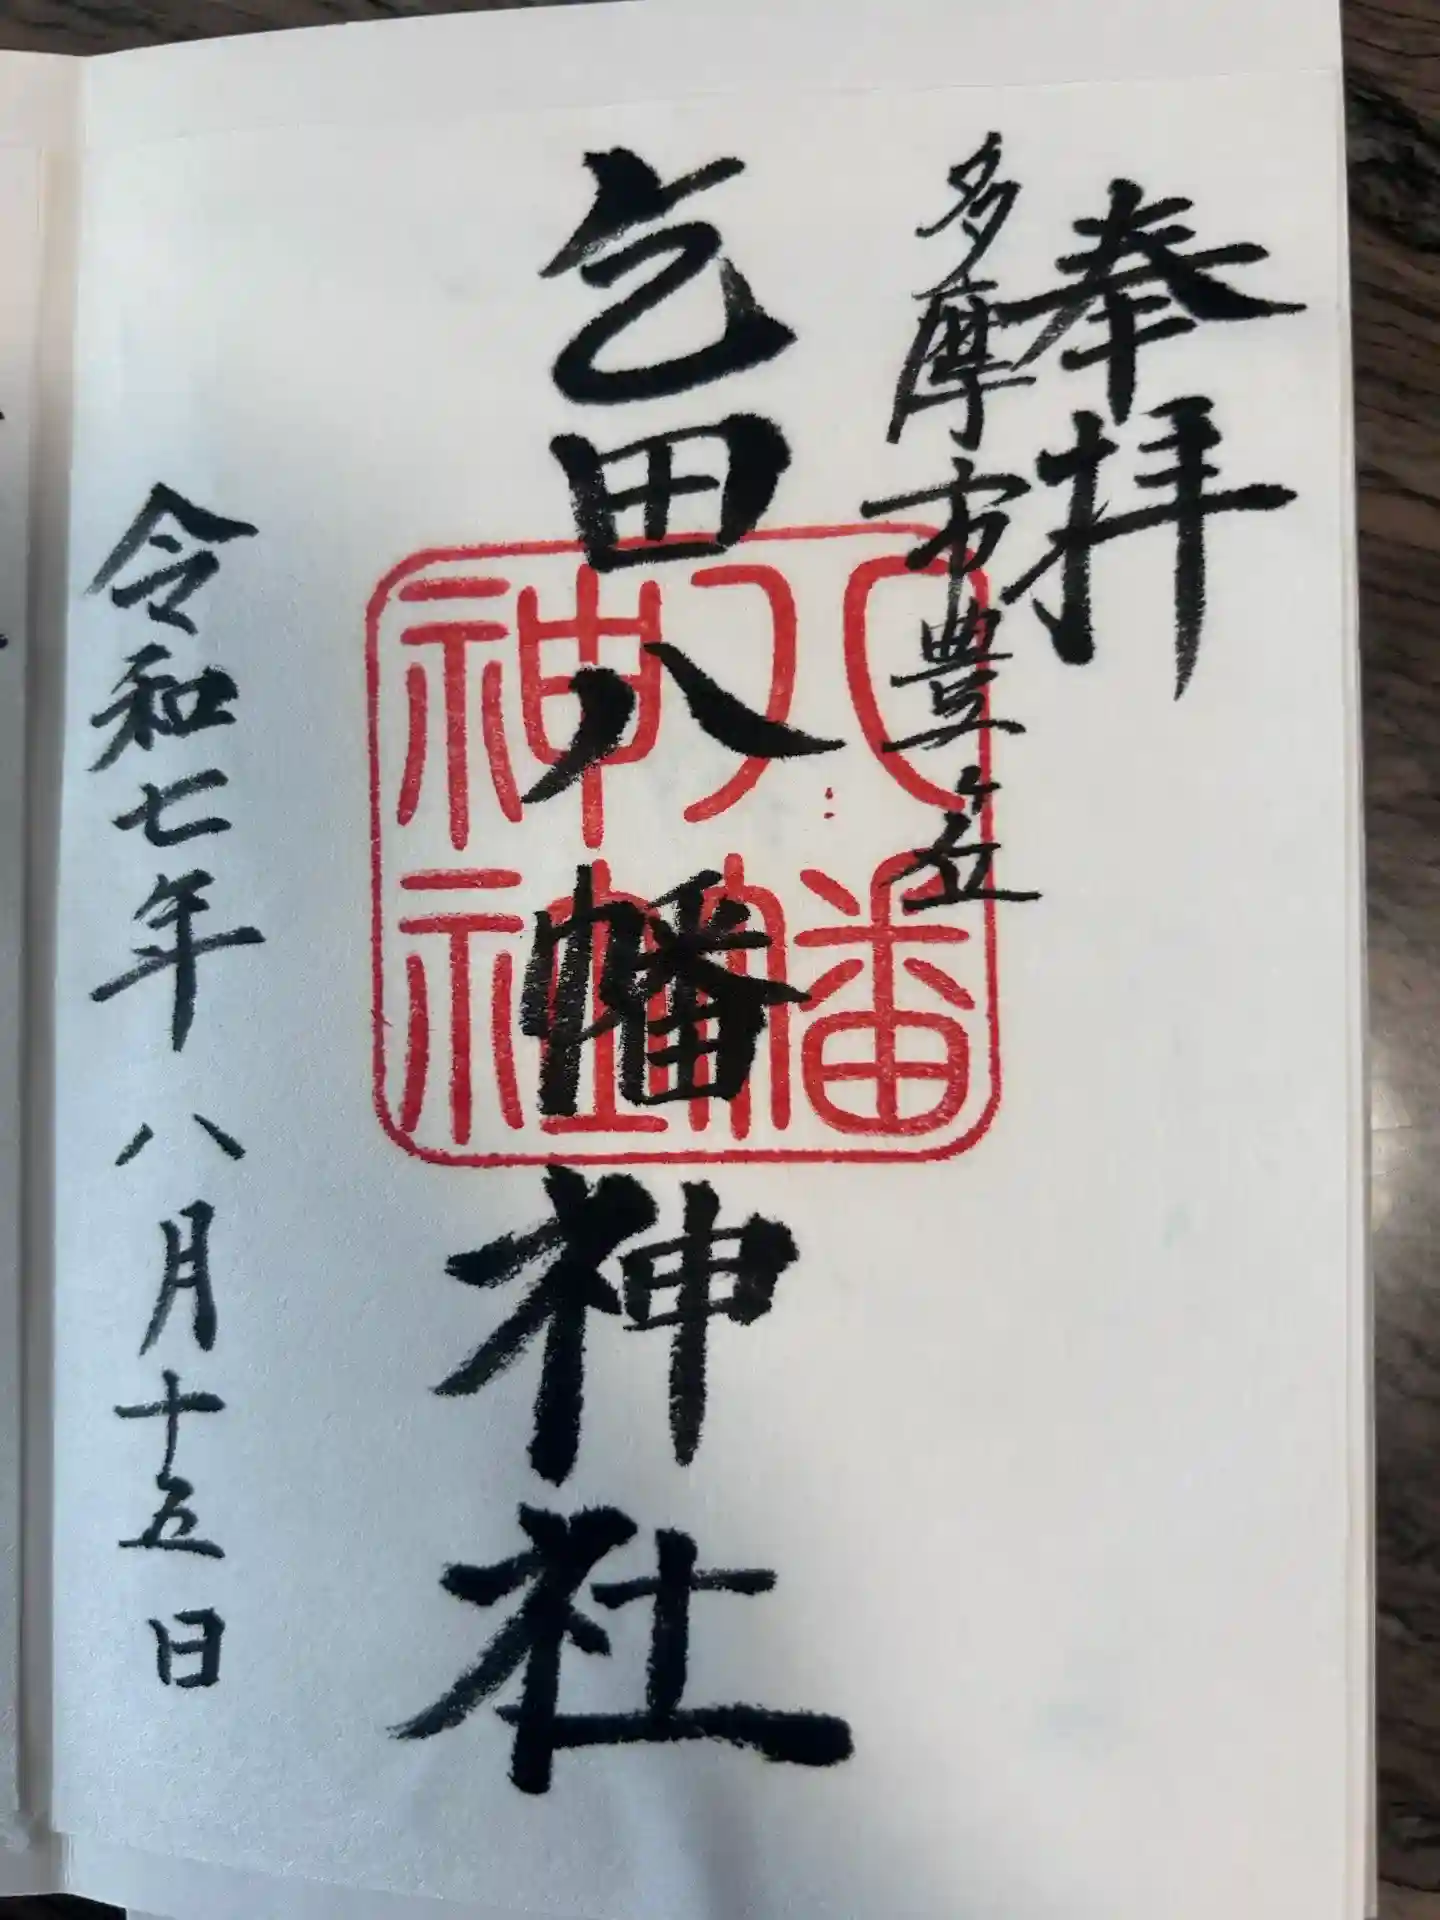 奉拝
多摩市豊ヶ丘
乞田八幡神社
八幡神社
令和七年八月十五日